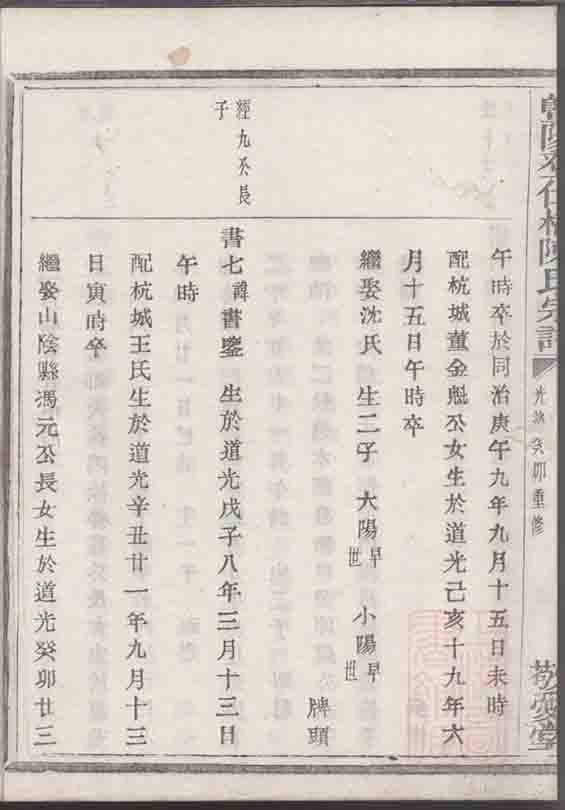 陳氏宗譜
光緒癸卯重修
敬愛堂
午時卒於同治庚午九年九月十五日未時
配杭城董金魁公女生於道光己亥十九年六
月十五日午時卒
繼娶沈氏生二子 大陽早世 小陽早世
牌頭
經九公長
子
書七諱書鑒 生於道光戊子八年三月十三日
午時
配杭城王氏生於道光辛丑廿一年九月十三
日寅時卒
繼娶山陰縣馮元公長女生於道光癸卯廿三